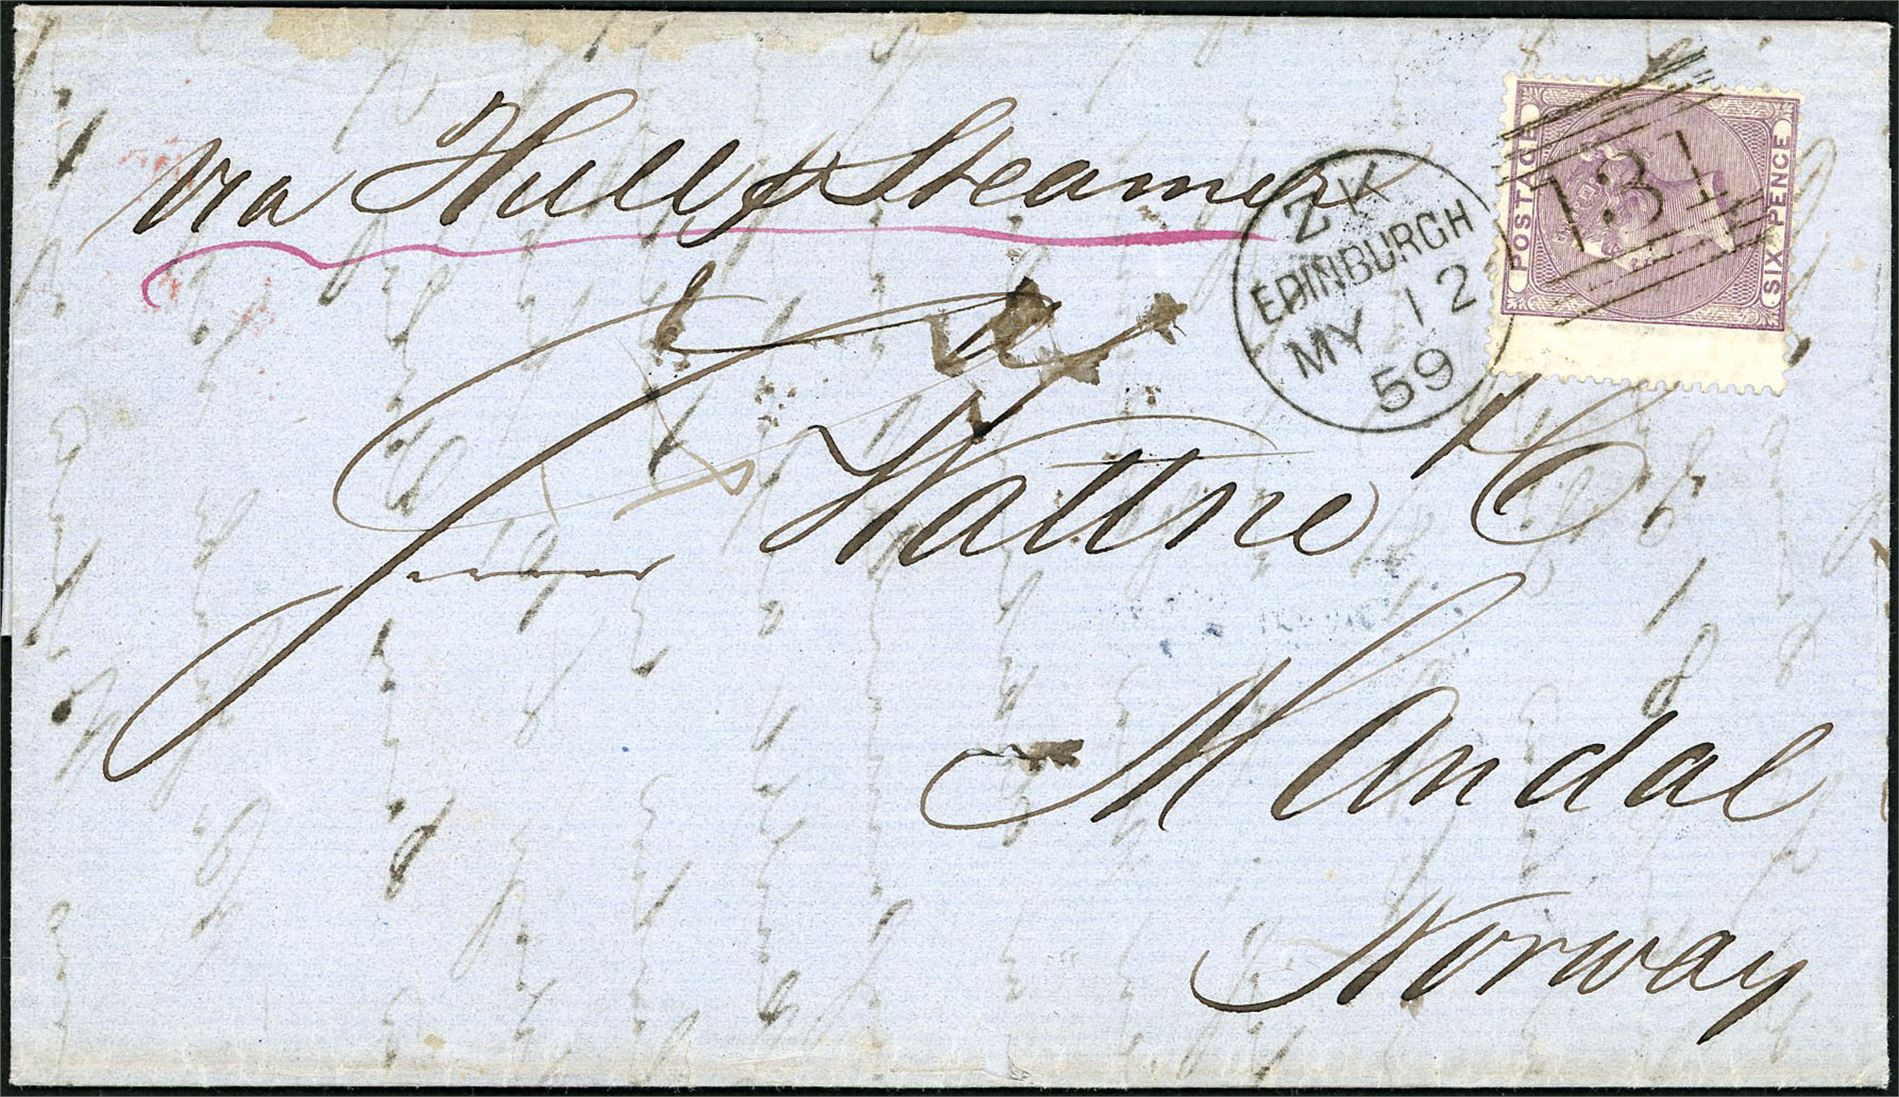 via Hull & Steamer
POSTAGE
131
SIX PENCE
ZK
EDINBURGH
MY 12
59
Mandal
Norway